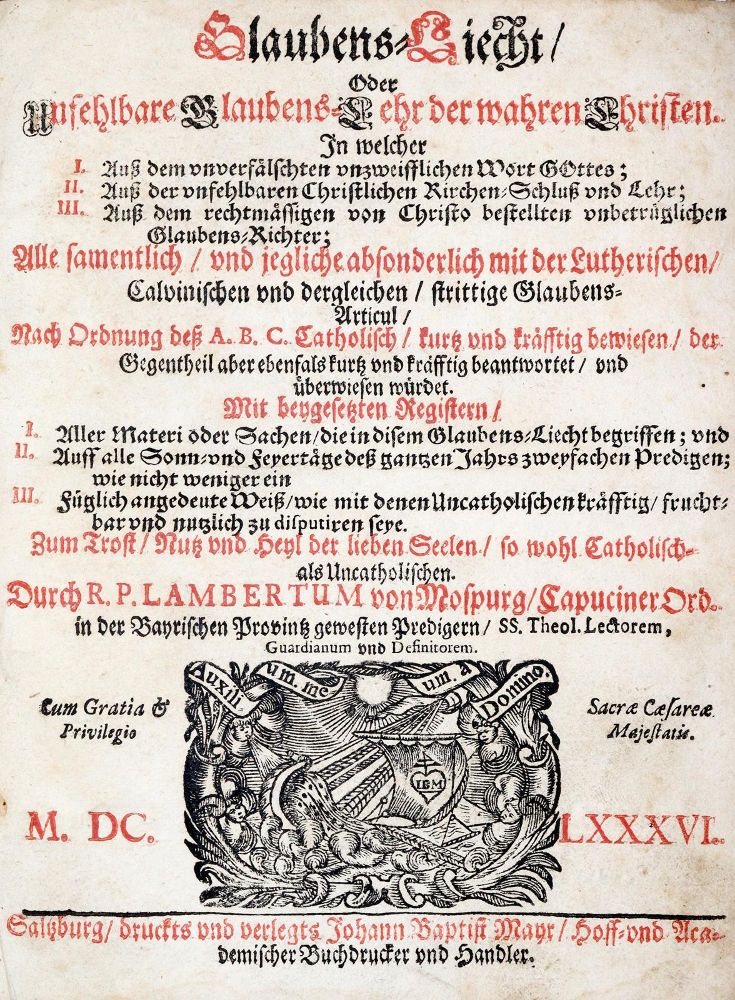 Glaubens-Liecht/
Oder
Unfehlbare Glaubens-Lehr der wahren Christen.
In welcher
I. Auß dem vnverfälschten vnzweifflichen Wort GOttes;
II. Auß der vnfehlbaren Christlichen Kirchen-Schluß vnd Lehr;
III. Auß dem rechtmässigen von Christo bestellten vnbetrüglichen
Glaubens-Richter;
Alle samentlich/ vnd jegliche absonderlich mit der Lutherischen/
Calvinischen vnd dergleichen/ strittige Glaubens-
Articul/
Nach Ordnung deß A. B. C. Catholisch/ kurtz vnd kräfftig bewiesen/ der
Gegentheil aber ebenfals kurtz vnd kräfftig beantwortet/ vnd
überwiesen würdet.
Mit beygesetzten Registern/
I. Aller Materi oder Sachen/ die in disem Glaubens-Liecht begriffen; vnd
II. Auff alle Sonn- vnd Feyertäge deß gantzen Jahrs zweyfachen Predigen;
wie nicht weniger ein
III. Füglich angedeute Weiß/ wie mit denen Uncatholischen kräfftig/ frucht-
bar vnd nutzlich zu disputiren seye.
Zum Trost/ Nutz vnd Heyl der lieben Seelen/ so wohl Catholisch-
als Uncatholischen.
Durch R. P. LAMBERTUM von Mospurg/ Capuciner Ord.
in der Bayrischen Provintz gewesten Predigern/ SS. Theol. Lectorem,
Guardianum vnd Definitorem.
Auxili um. me um. a Domino.
Cum Gratia &
Privilegio
Sacræ Cæsareæ
Majestatis.
IBM
M. DC. LXXXVI.
Saltzburg/ druckts vnd verlegts Johann Baptist Mayr/ Hoff- vnd Aca-
demischer Buchdrucker vnd Handler.